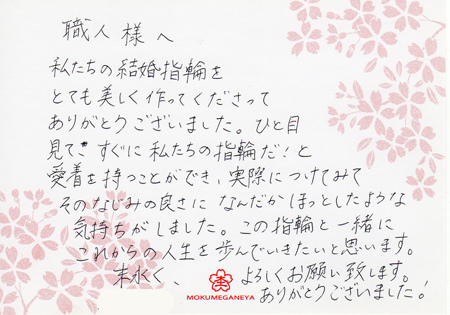 職人様へ
私たちの結婚指輪を
とても美しく作ってくださって
ありがとうございました。ひと目
見てすぐに私たちの指輪だ！と
愛着を持つことができ、実際につけてみて
そのなじみの良さになんだかほっとしたような
気持ちがしました。この指輪と一緒に
これからの人生を歩んでいきたいと思います。
末永く、よろしくお願い致します。
MOKUMEGANEYA
ありがとうございました！